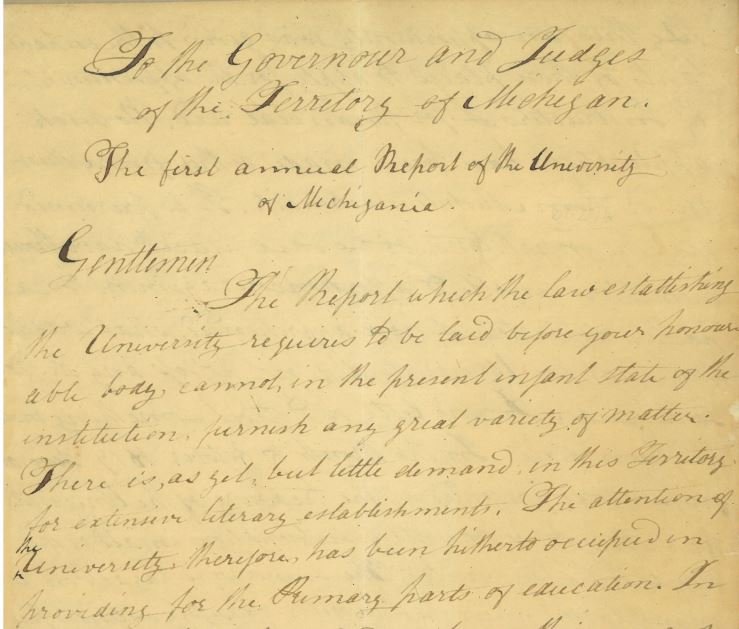 To the Governour and Judges
of the Territory of Michigan.
The first annual Report of the University
of Michigania.
Gentlemen
The Report which the law establishing
the University requires to be laid before your honour-
able body, cannot, in the present infant state of the
institution, furnish any great variety of matter.
There is, as yet, but little demand, in this Territory
for extensive literary establishments. The attention of
the University, therefore, has been hitherto occupied in
providing for the Primary parts of education. In